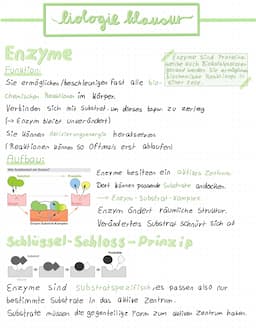 biologie klausur
Enzyme
Enzyme sind Proteine,
welche auch Biokatalysatoren
genannt werden. Sie ermöglichen
biochemische Reaktionen in
einer Zelle.
Funktion:
Sie ermöglichen/beschleunigen fast alle bio-
chemischen Reaktionen im Körper.
Verbinden sich mit Substrat, um dieses dann zu
(→ Enzym bleibt unverändert)
Sie können Aktivierungsenergie herabsenken
(Reaktionen können so oftmals erst ablaufen)
Aufbau:
Enzyme besitzen ein aktives Zentrum.
Dort können passende Substrate andocken.
→ Enzym-Substrat-Komplex
Enzym ändert räumliche Struktur.
Verändertes Substrat schnürt sich ab
Schlüssel-Schloss-Prinzip
Enzyme sind substratspezifisch, es passen also nur
bestimmte Substrate in das aktive Zentrum.
Substrate müssen die gegenteilige Form zum aktiven Zentrum haben.